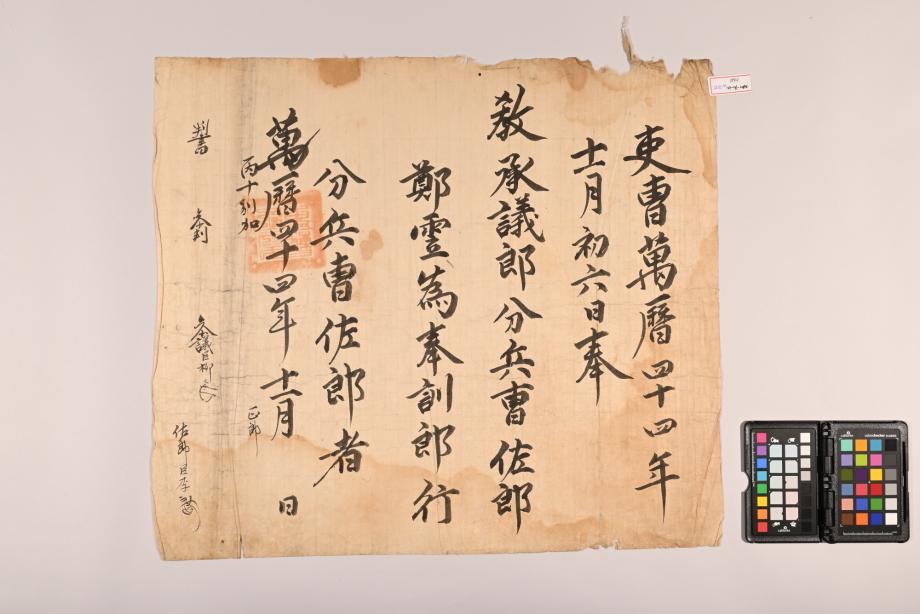 吏曹萬曆四十四年
十二月初六日奉
教承議郎分兵曹佐郎
鄭霊爲奉訓郎行
分兵曹佐郎者
萬曆四十四年十二月 日
丙十別加
正郎
判書
參判
參議臣柳
佐郎臣李